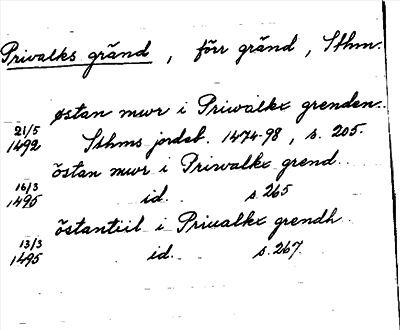 Privalks gränd, förr gränd, Sthm.
østan mwr i Priwalkx grenden.
21/5 1492 Sthms jordeb. 1474-98, s. 205.
östan mwr i Priwalkx grend
16/3 1495 id. s. 265
östantiil i Priualkx grendh
13/3 1495 id. s. 267.